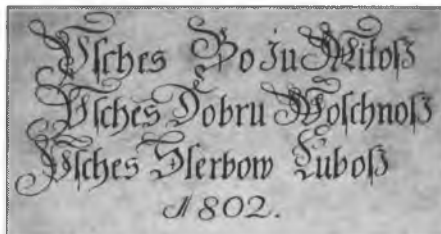 Pſches Boju Mitoß
Pſches Dobru Moſchnoß
Pſches Sſerbow Luboß
1802.